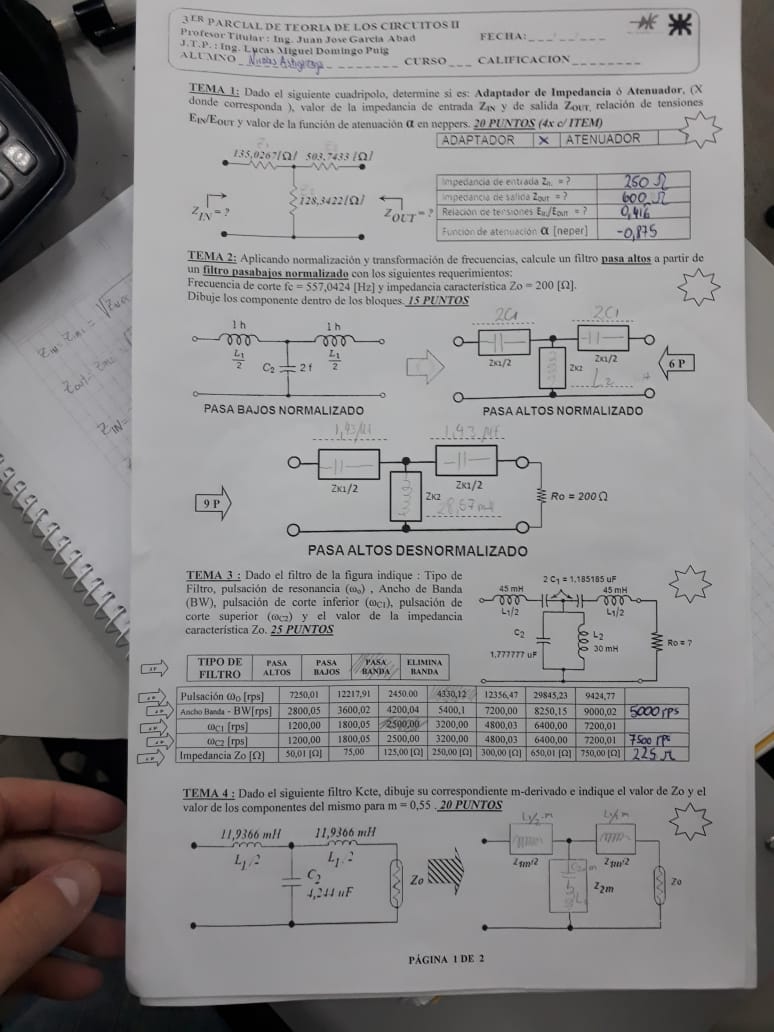 3ER PARCIAL DE TEORIA DE LOS CIRCUITOS II
Profesor Titular : Ing. Juan Jose Garcia Abad
FECHA:
J.T.P. : Ing. Lucas Miguel Domingo Puig
ALUMNO CURSO CALIFICACION
TEMA 1: Dado el siguiente cuadripolo, determine si es: Adaptador de Impedancia ó Atenuador, (X
donde corresponda ), valor de la impedancia de entrada ZIN y de salida ZOUT, relación de tensiones
EIN/EOUT y valor de la función de atenuación α en neppers. 20 PUNTOS (4x c/ ITEM)
ADAPTADOR X ATENUADOR
135,0267[Ω] 503,7433 [Ω]
128,3422[Ω]
ZIN = ?
ZOUT = ?
Impedancia de entrada Zin = ? 250 Ω
Impedancia de salida Zout = ? 600 Ω
Relación de tensiones Ein/Eout = ? 0,416
Función de atenuación α [neper] -0,875
TEMA 2: Aplicando normalización y transformación de frecuencias, calcule un filtro pasa altos a partir de
un filtro pasabajos normalizado con los siguientes requerimientos:
Frecuencia de corte fc = 557,0424 [Hz] y impedancia característica Zo = 200 [Ω].
Dibuje los componente dentro de los bloques. 15 PUNTOS
1 h 1 h
L1/2 C2 2 f L1/2
2C1 2C1
ZK1/2 ZK1/2
ZK2
L2
6 P
PASA BAJOS NORMALIZADO
PASA ALTOS NORMALIZADO
1,43 μf 1,43 μf
ZK1/2 ZK1/2
ZK2
9 P
Ro = 200 Ω
PASA ALTOS DESNORMALIZADO
TEMA 3 : Dado el filtro de la figura indique : Tipo de
Filtro, pulsación de resonancia (ωo) , Ancho de Banda
(BW), pulsación de corte inferior (ωC1), pulsación de
corte superior (ωC2) y el valor de la impedancia
característica Zo. 25 PUNTOS
2 C1 = 1,185185 uF
45 mH 45 mH
L1/2 L1/2
C2 L2
1,777777 uF 30 mH
Ro = ?
TIPO DE FILTRO PASA ALTOS PASA BAJOS PASA BANDA ELIMINA BANDA
Pulsación ωO [rps] 7250,01 12217,91 2450.00 4330,12 12356,47 29845,23 9424,77
Ancho Banda - BW[rps] 2800,05 3600,02 4200,04 5400,1 7200,00 8250,15 9000,02 5000 rps
ωC1 [rps] 1200,00 1800,05 2500,00 3200,00 4800,03 6400,00 7200,01
ωC2 [rps] 1200,00 1800,05 2500,00 3200,00 4800,03 6400,00 7200,01 7500 rps
Impedancia Zo [Ω] 50,01 [Ω] 75,00 125,00 [Ω] 250,00 [Ω] 300,00 [Ω] 650,01 [Ω] 750,00 [Ω] 225 Ω
TEMA 4 : Dado el siguiente filtro Kcte, dibuje su correspondiente m-derivado e indique el valor de Zo y el
valor de los componentes del mismo para m = 0,55 . 20 PUNTOS
11,9366 mH 11,9366 mH
L1/2 L1/2
C2
4,244 uF
Zo
L1/2·m
Z1m/2 Z1m/2
Z2m
Zo
PÁGINA 1 DE 2